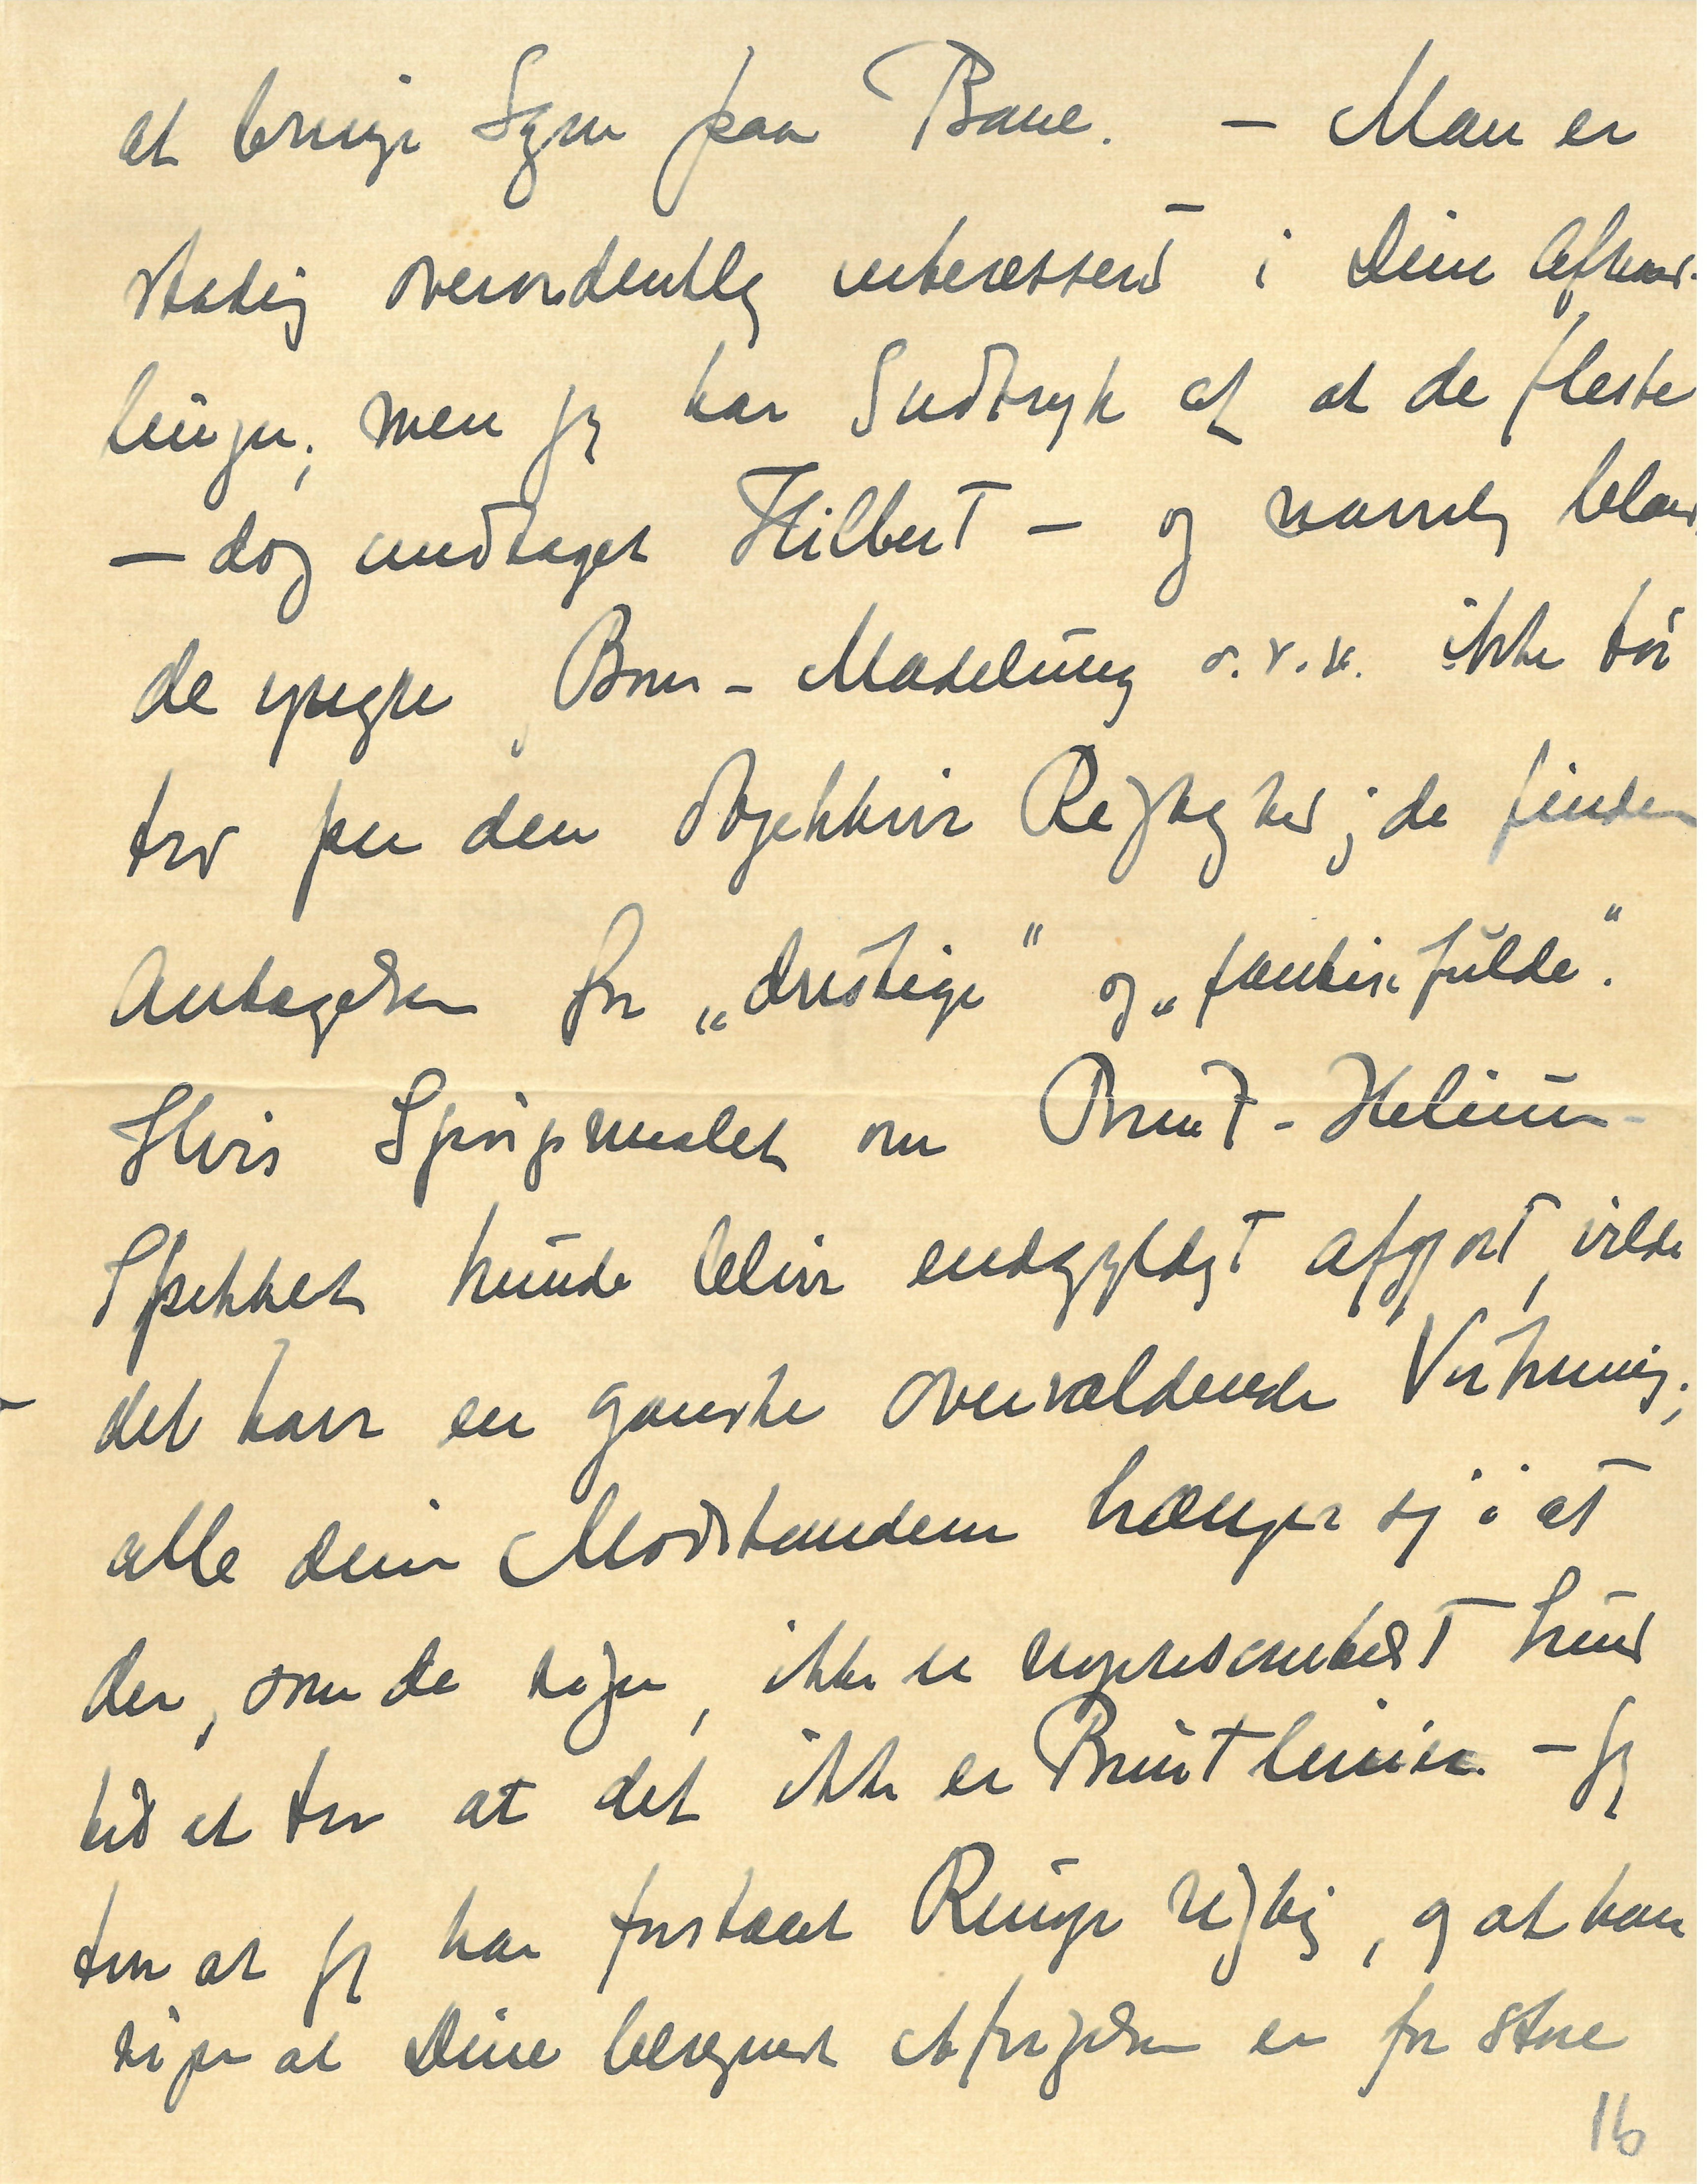 at bringe Sagen paa Bane. – Man er
stadig overordentlig interesseret i Dine Afhand-
linger; men jeg har Indtryk af at de fleste
– dog undtaget Hilbert – og navnlig bland
de yngre, Born – Madelung o.s.v. ikke tør
tro paa den objektive Rigtighed; de finder
Antagelsen for „dristige" og „fantasifulde".
Hvis Spørgsmaalet om Brint-Helium-
Spektret kunde blive endegyldigt afgjort, vilde
det have en ganske overvældende Virkning;
alle dine Modstandere hænger sig i at
der, som de siger, ikke er repræsenteret Grund
til at tro at det ikke er Brintlinier. – Jeg
tror at jeg har forstaaet Runge rigtig, og at han
siger at Dine beregnede Afvigelser er for store
16